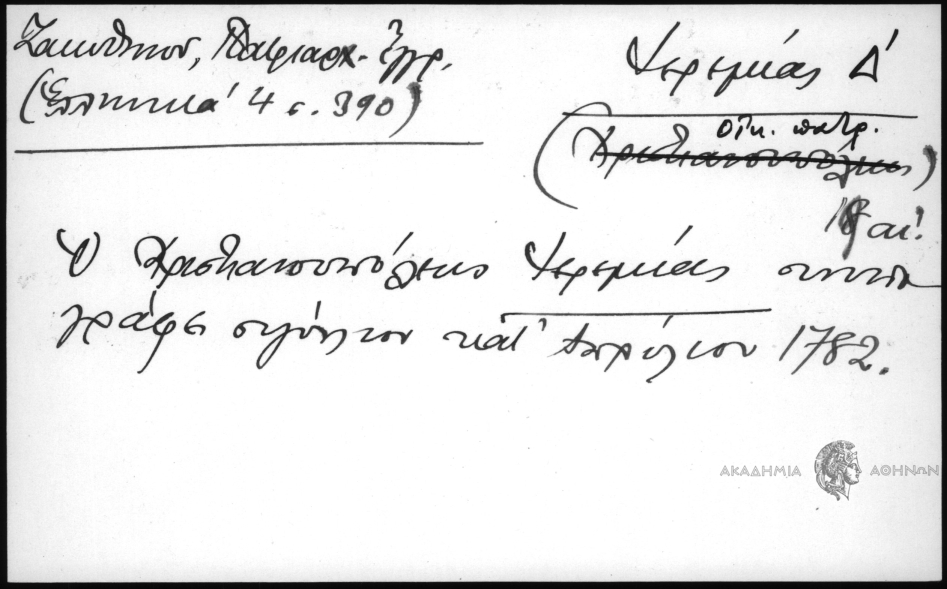 Ζακυθηνού, Πατριαρχ. Ἔγγρ.
(Ἑλληνικά 4 σ. 390)
Ἱερεμίας Δ΄
οἰκ. πατρ.
(Χριστιανουπόλεως)
18 αἰ.
Ὁ Χριστιανουπόλεως Ἱερεμίας συνυπο
γράφει σιγίλλιον κατ' Ἀπρίλιον 1782.
ΑΚΑΔΗΜΙΑ ΑΘΗΝΩΝ